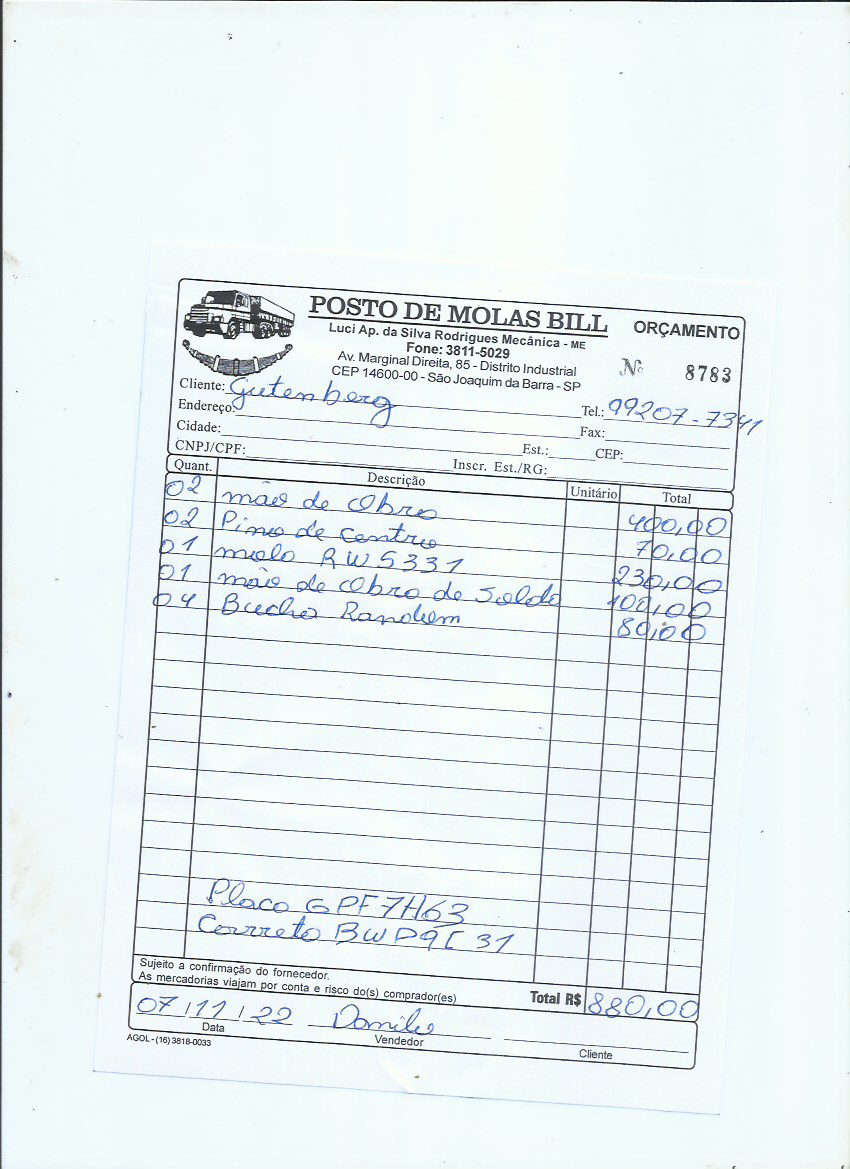 POSTO DE MOLAS BILL
ORÇAMENTO
Luci Ap. da Silva Rodrigues Mecânica - ME
Fone: 3811-5029
Av. Marginal Direita, 85 - Distrito Industrial
CEP 14600-00 - São Joaquim da Barra - SP
Nº 8783
Cliente: Gutenberg Tel.: 99207-7341
Endereço: Fax:
Cidade: Est.: CEP:
CNPJ/CPF: Inscr. Est./RG:
Quant. Descrição Unitário Total
02 mão de Obra 400,00
02 Pino de Centro 70,00
01 mola RW5331 230,00
01 mão de Obra de Solda 100,00
04 Bucha Randem 80,00
Placa GPF7H63
Carreta BWD9C31
Sujeito a confirmação do fornecedor.
As mercadorias viajam por conta e risco do(s) comprador(es)
Total R$ 880,00
07/11/22 Danilo
Data Vendedor Cliente
AGOL - (16) 3818-0033